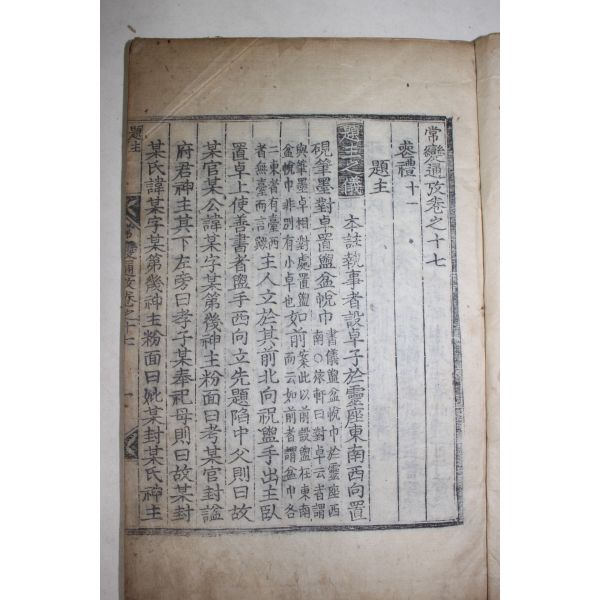 常變通攷卷之十七
喪禮十一
題主
題主之儀 本註執事者設卓子於靈座東南西向置
硯筆墨對卓置盥盆帨巾
書儀盥盆帨巾於靈座西
南○
軒曰對卓云者謂
與筆墨卓相對處置盥
盆帨巾非別有小卓也
如前
案此以前設盥在東南
而云如前者謂盆巾各
二東者有臺西
者無臺而言
主人立於其前北向祝盥手出主臥
置卓上使善書者盥手西向立先題陷中父則曰故
某官某公諱某字某第幾神主粉面曰考某官封諡
府君神主其下左旁曰孝子某奉祀母則曰故某封
某氏諱某字某第幾神主粉面曰妣某封某氏神主
題主
常變通攷卷之十七
一